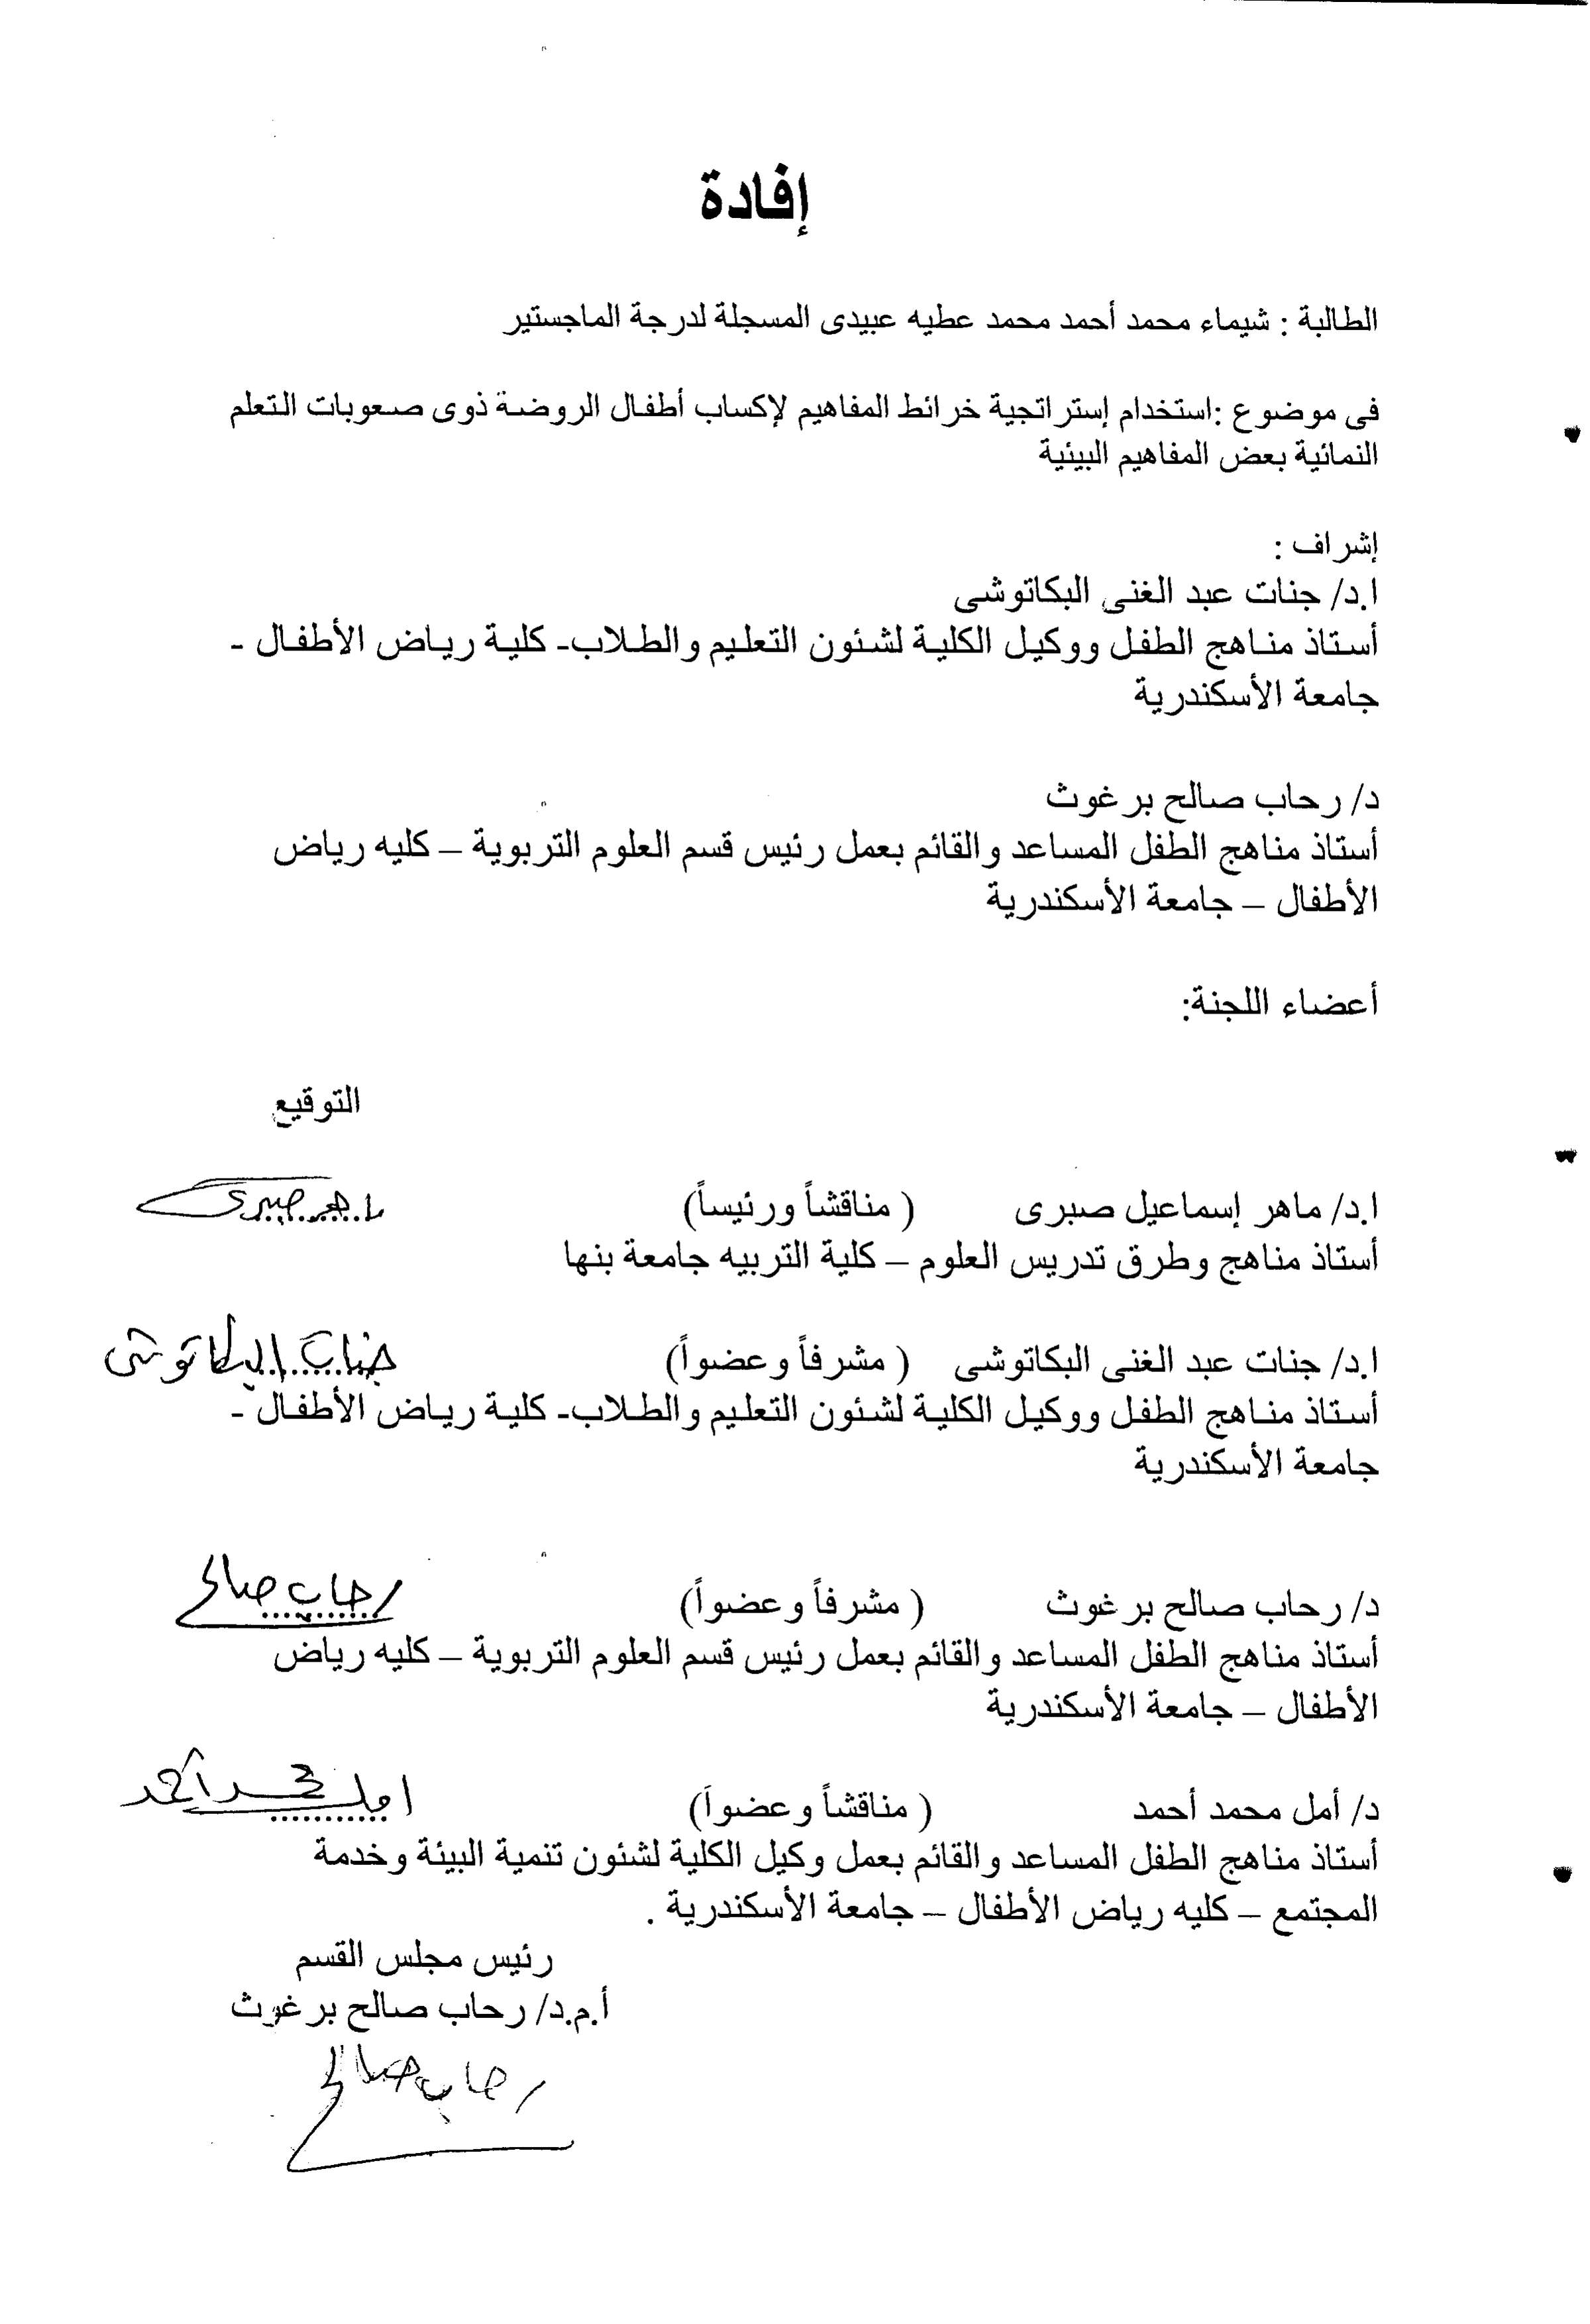 إفادة
الطالبة : شيماء محمد أحمد محمد عطيه عبيدى المسجلة لدرجة الماجستير
فى موضوع :استخدام إستراتجية خرائط المفاهيم لإكساب أطفال الروضة ذوى صعوبات التعلم
النمائية بعض المفاهيم البيئية
إشراف :
ا.د/ جنات عبد الغنى البكاتوشى
أستاذ مناهج الطفل ووكيل الكلية لشئون التعليم والطلاب- كلية رياض الأطفال -
جامعة الأسكندرية
د/ رحاب صالح برغوث
أستاذ مناهج الطفل المساعد والقائم بعمل رئيس قسم العلوم التربوية – كليه رياض
الأطفال – جامعة الأسكندرية
أعضاء اللجنة:
التوقيع
ا.د/ ماهر إسماعيل صبرى ( مناقشاً ورئيساً) ماهر صبرى
أستاذ مناهج وطرق تدريس العلوم – كلية التربيه جامعة بنها
ا.د/ جنات عبد الغنى البكاتوشى ( مشرفاً وعضواً) جنات البكاتوشى
أستاذ مناهج الطفل ووكيل الكلية لشئون التعليم والطلاب- كلية رياض الأطفال -
جامعة الأسكندرية
د/ رحاب صالح برغوث ( مشرفاً وعضواً) رحاب صالح
أستاذ مناهج الطفل المساعد والقائم بعمل رئيس قسم العلوم التربوية – كليه رياض
الأطفال – جامعة الأسكندرية
د/ أمل محمد أحمد ( مناقشاً وعضواً) امل محمد أحمد
أستاذ مناهج الطفل المساعد والقائم بعمل وكيل الكلية لشئون تنمية البيئة وخدمة
المجتمع – كليه رياض الأطفال – جامعة الأسكندرية .
رئيس مجلس القسم
أ.م.د/ رحاب صالح برغوث
رحاب صالح